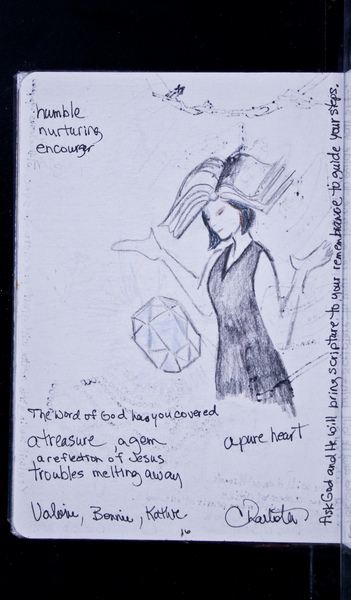 humble
nurturing
encourger
The Word of God has you covered
a treasure a gem
a pure heart
a reflection of Jesus
troubles melting away
Valerie, Bonnie, Kathie
16
Ask God and He will bring scripture to your remembrance to guide your steps.